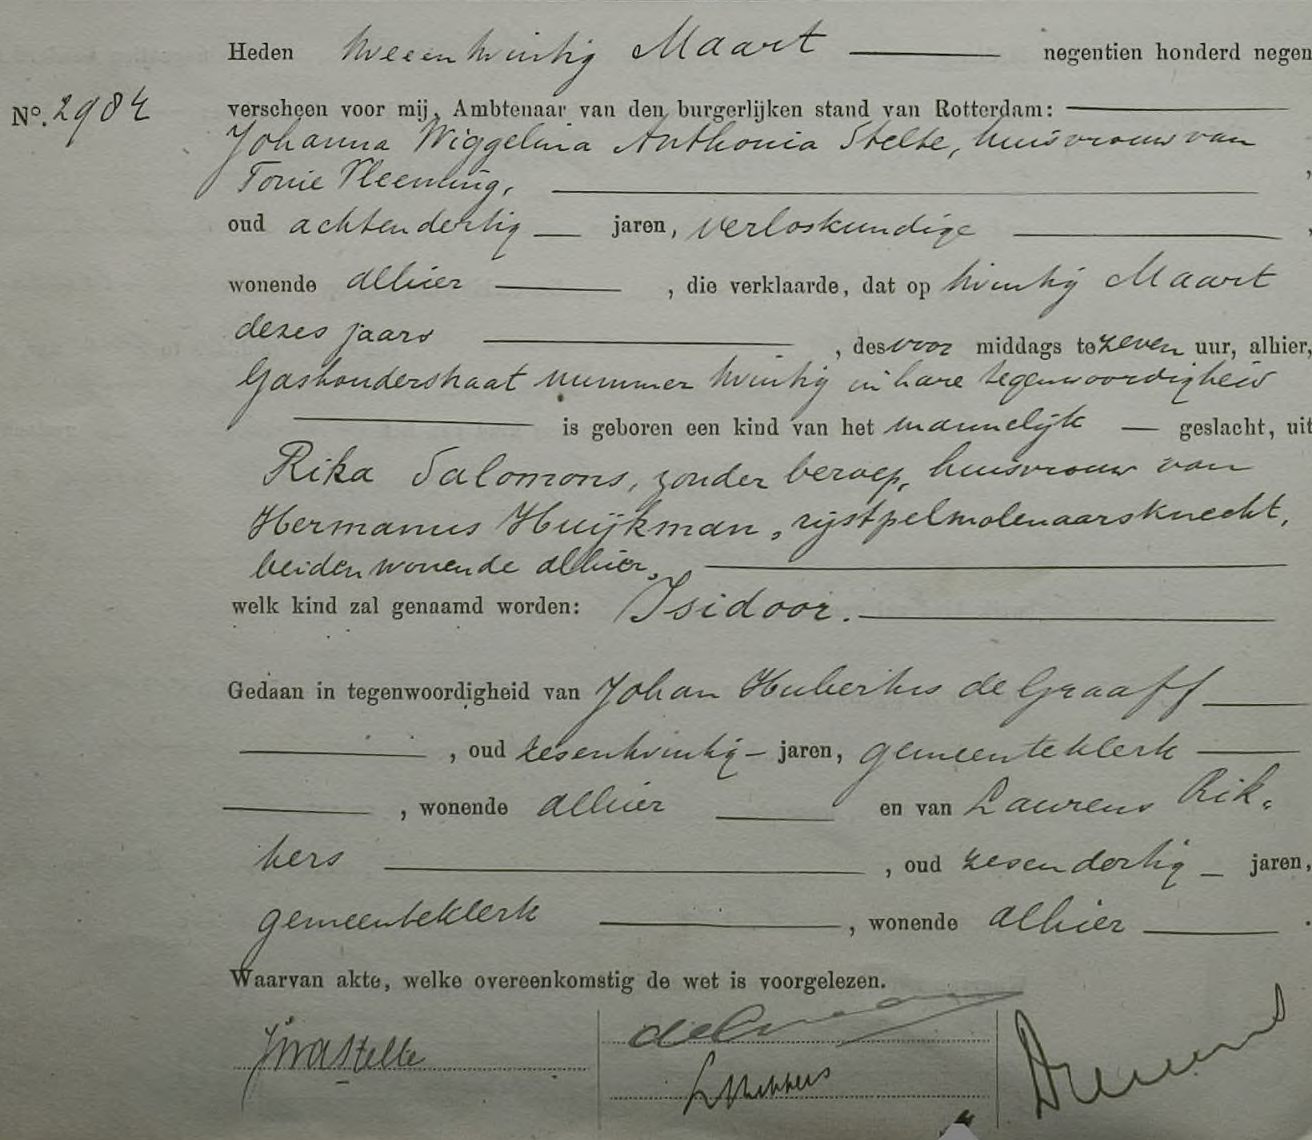 Heden tweeentwintig Maart negentien honderd negen
No. 2984
verscheen voor mij, Ambtenaar van den burgerlijken stand van Rotterdam:
Johanna Wiggelina Anthonia Stelte, huisvrouw van
Tonie Vleeming,
oud achtendertig jaren, verloskundige,
wonende alhier, die verklaarde, dat op twintig Maart
dezes jaars, des voor middags te zeven uur, alhier,
Gashouderstraat nummer twintig in hare tegenwoordigheid
is geboren een kind van het mannelijk geslacht, uit
Rika Salomons, zonder beroep, huisvrouw van
Hermanus Huijkman, rijstpelmolenaarsknecht,
beiden wonende alhier,
welk kind zal genaamd worden: Isidoor.
Gedaan in tegenwoordigheid van Johan Hubertus de Graaff
, oud zesentwintig jaren, gemeenteklerk
, wonende alhier en van Laurens Rik-
kers, oud zesendertig jaren,
gemeenteklerk, wonende alhier.
Waarvan akte, welke overeenkomstig de wet is voorgelezen.
JWAStelte
de Graaff
L Rikkers